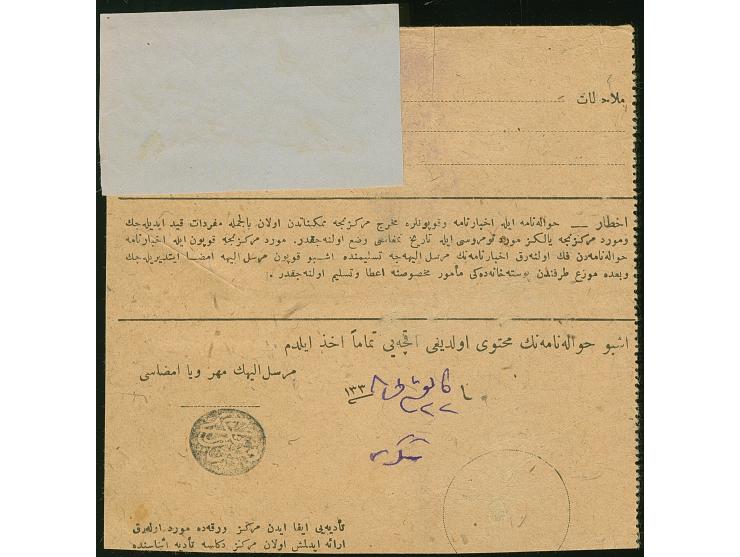 ملاحظات
اخطار — حواله‌نامه ايله اخبارنامه وقوپونلره مخرج مركزنجه ممكناتدن اولان بالجمله مفردات قيد ايديله‌جك
ومورد مركزنجه يالكز مورد نومروسى ايله تاريخ تمغاسى وضع اولنه‌جقدر. مورد مركزنجه قوپون ايله اخبارنامه
حواله‌نامه‌دن فك اولنه‌رق اخبارنامه‌نك مرسل اليهه‌جه تسليمنده اشبو قوپون مرسل اليهه امضا ايتديريله‌جك
وبعده موزع طرفندن پوسته‌خانه‌ده‌كى مأمور مخصوصنه اعطا وتسليم اولنه‌جقدر.
اشبو حواله‌نامه‌نك محتوى اولديغى آقچه‌يى تماماً اخذ ايلدم
١٣٣٨
مرسل اليهك مهر ويا امضاسى
تأديه‌يى ايفا ايدن مركز ورقه‌ده مورد اوله‌رق
ارائه ايدلمش اولان مركز دكلسه تأديه اثناسنده